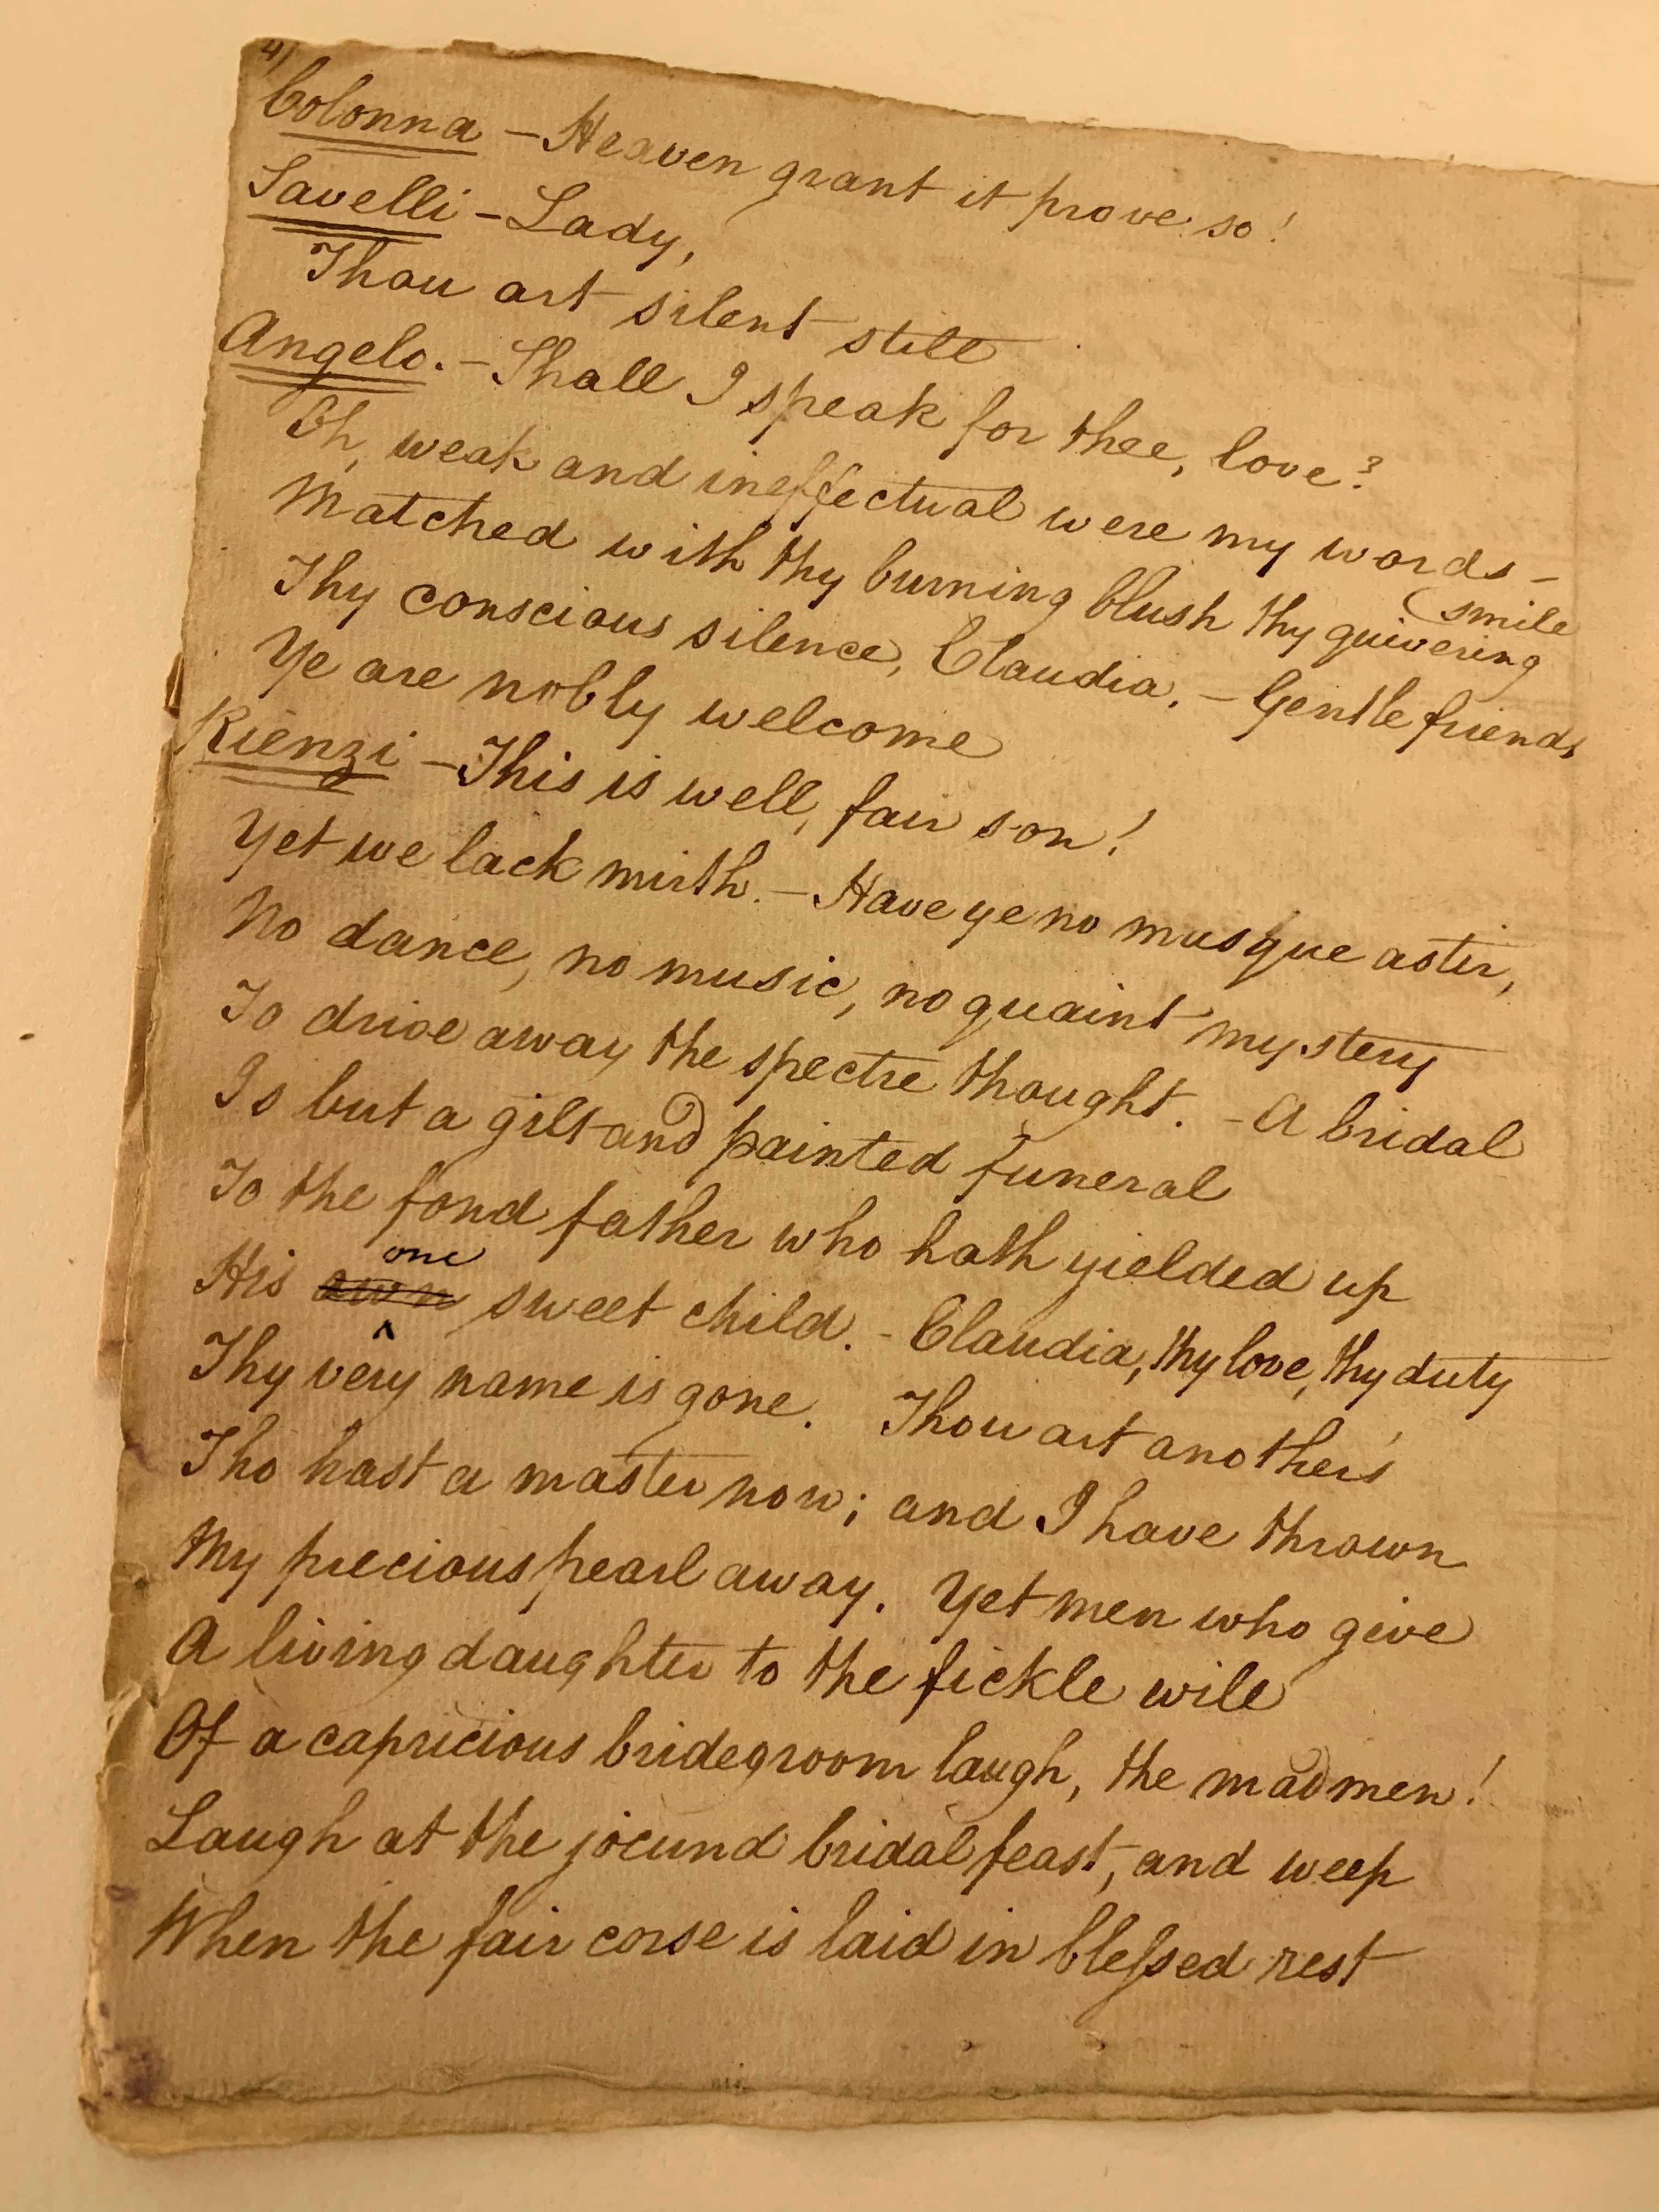 4)
Colonna - Heaven grant it prove so!
Savelli - Lady,
Thou art silent still
Angelo. - Shall I speak for thee, love?
Oh, weak and ineffectual were my words -
Matched with thy burning blush thy quivering (smile
Thy conscious silence, Claudia. - Gentle friends
Ye are nobly welcome
Rienzi - This is well, fair son!
Yet we lack mirth. - Have ye no musque astir,
No dance, no music, no quaint mystery
To drive away the spectre thought. - A bridal
Is but a gilt and painted funeral
To the fond father who hath yielded up
His own one sweet child. - Claudia, thy love, thy duty
Thy very name is gone. Thou art another's
Tho hast a master now; and I have thrown
My precious pearl away. Yet men who give
A living daughter to the fickle will
Of a capricious bridegroom laugh, the madmen!
Laugh at the jocund bridal feast, and weep
When the fair corse is laid in blessed rest